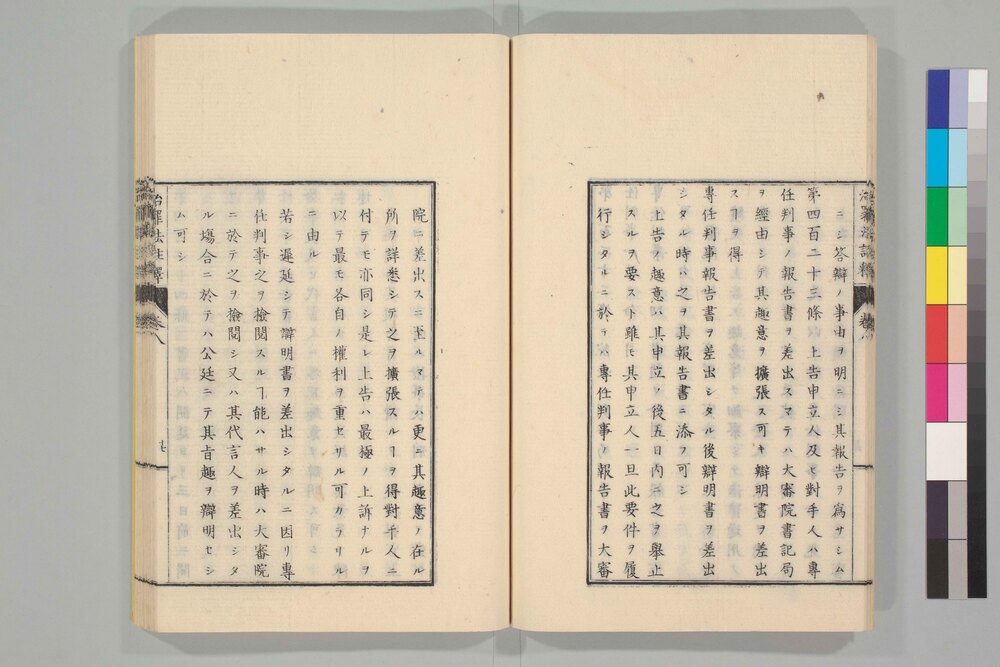 ニシ答辯ノ事由ヲ明ニシ其報告ヲ爲サシム
第四百二十三條　上告申立人及ヒ對手人ハ專
任判事ノ報告書ヲ差出スマテハ大審院書記局
ヲ經由シテ其趣意ヲ擴張ス可キ辯明書ヲ差出
スヿヲ得
專任判事報告書ヲ差出シタル後辯明書ヲ差出
シタル時ハ之ヲ其報告書ニ添フ可シ
上告ノ趣意ハ其申立ノ後五日內ニ之ヲ舉止
スルヲ要スト雖モ其申立人一旦此要件ヲ履
行シタルニ於テハ專任判事ノ報告書ヲ大審
院ニ差出スニ至ルマテハ更ニ其趣意ノ在ル
所ヲ詳悉シテ之ヲ擴張スルヿヲ得對手人ニ
付テモ亦同シ是レ上告ハ最極ノ上訴ナルヲ
以テ最モ各自ノ權利ヲ重セサル可カラサル
ニ由ル
若シ遲延シテ辯明書ヲ差出シタルニ因リ專
任判事之ヲ檢閱スルヿ能ハサル時ハ大審院
ニ於テ之ヲ檢閱シ又ハ其代言人ヲ差出シタ
ル塲合ニ於テハ公廷ニテ其旨趣ヲ辯明セシ
ム可シ
治罪法註釋
卷八